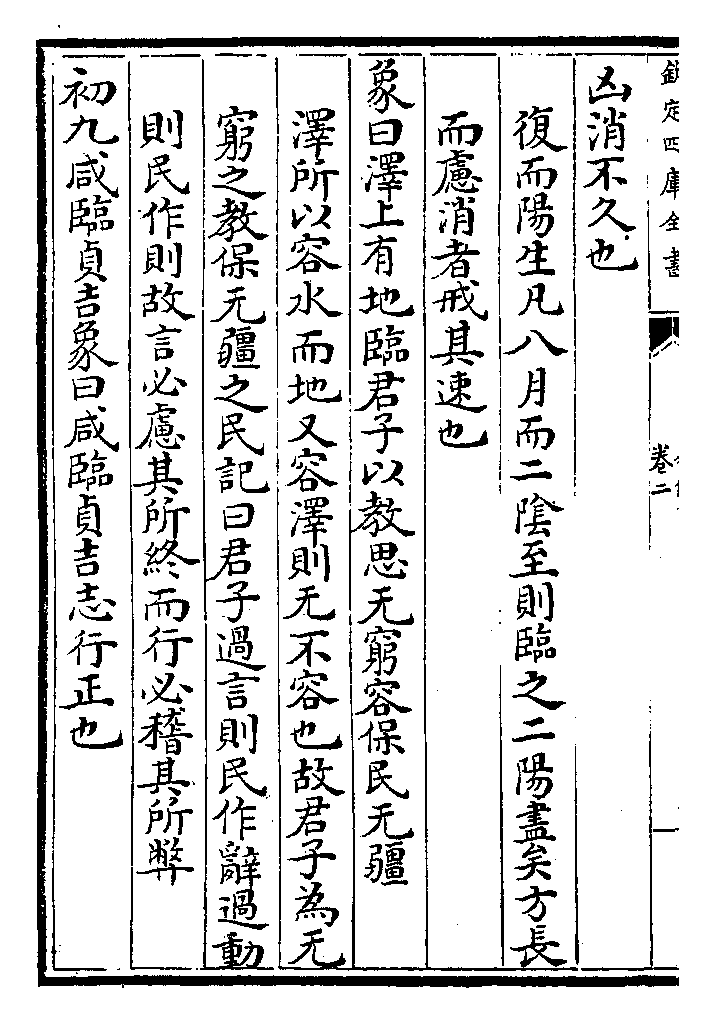 欽定四庫全書
卷二
凶消不久也
復而陽生凡八月而二陰至則臨之二陽盡矣方長
而慮消者戒其速也
象曰澤上有地臨君子以教思无窮容保民无疆
澤所以容水而地又容澤則无不容也故君子為无
窮之教保无疆之民記曰君子過言則民作辭過動
則民作則故言必慮其所終而行必稽其所弊
初九咸臨貞吉象曰咸臨貞吉志行正也